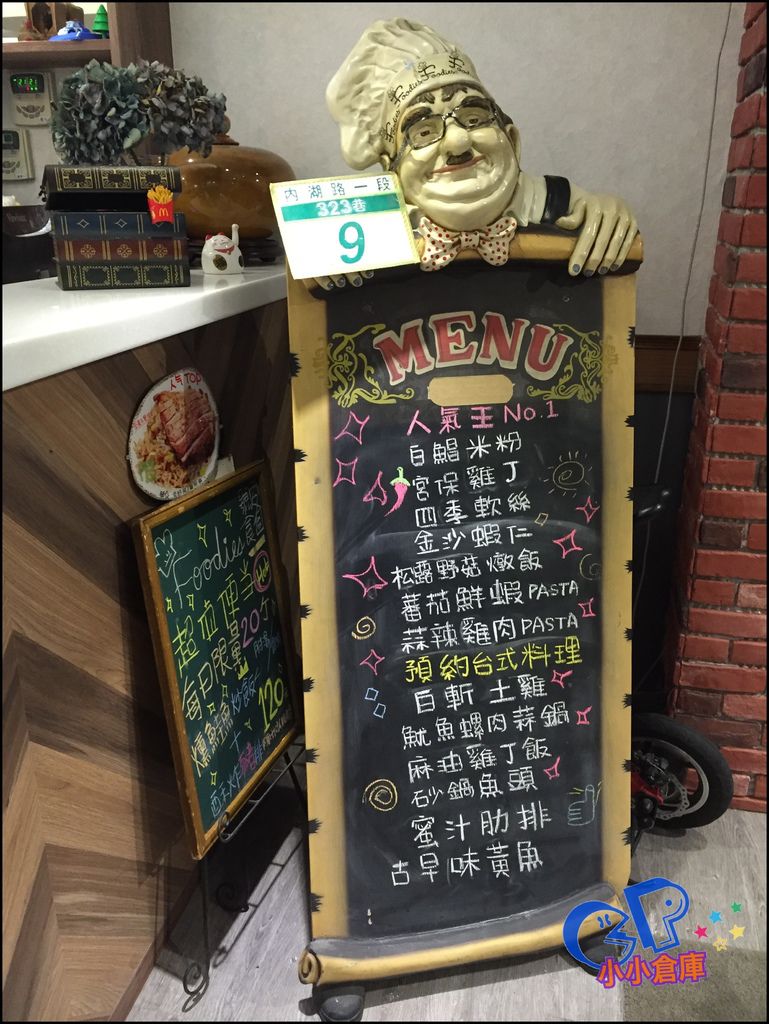 Foodies
內湖路一段
323巷
9
MENU
人氣王No.1
白鯧米粉
宮保雞丁
四季軟絲
金沙蝦仁
松露野菇燉飯
蕃茄鮮蝦PASTA
蒜辣雞肉PASTA
預約台式料理
白斬土雞
魷魚螺肉蒜鍋
麻油雞丁飯
砂鍋魚頭
蜜汁肋排
古早味黃魚
人氣TOP
Foodies
超值便當
每日限量20
120
小小倉庫